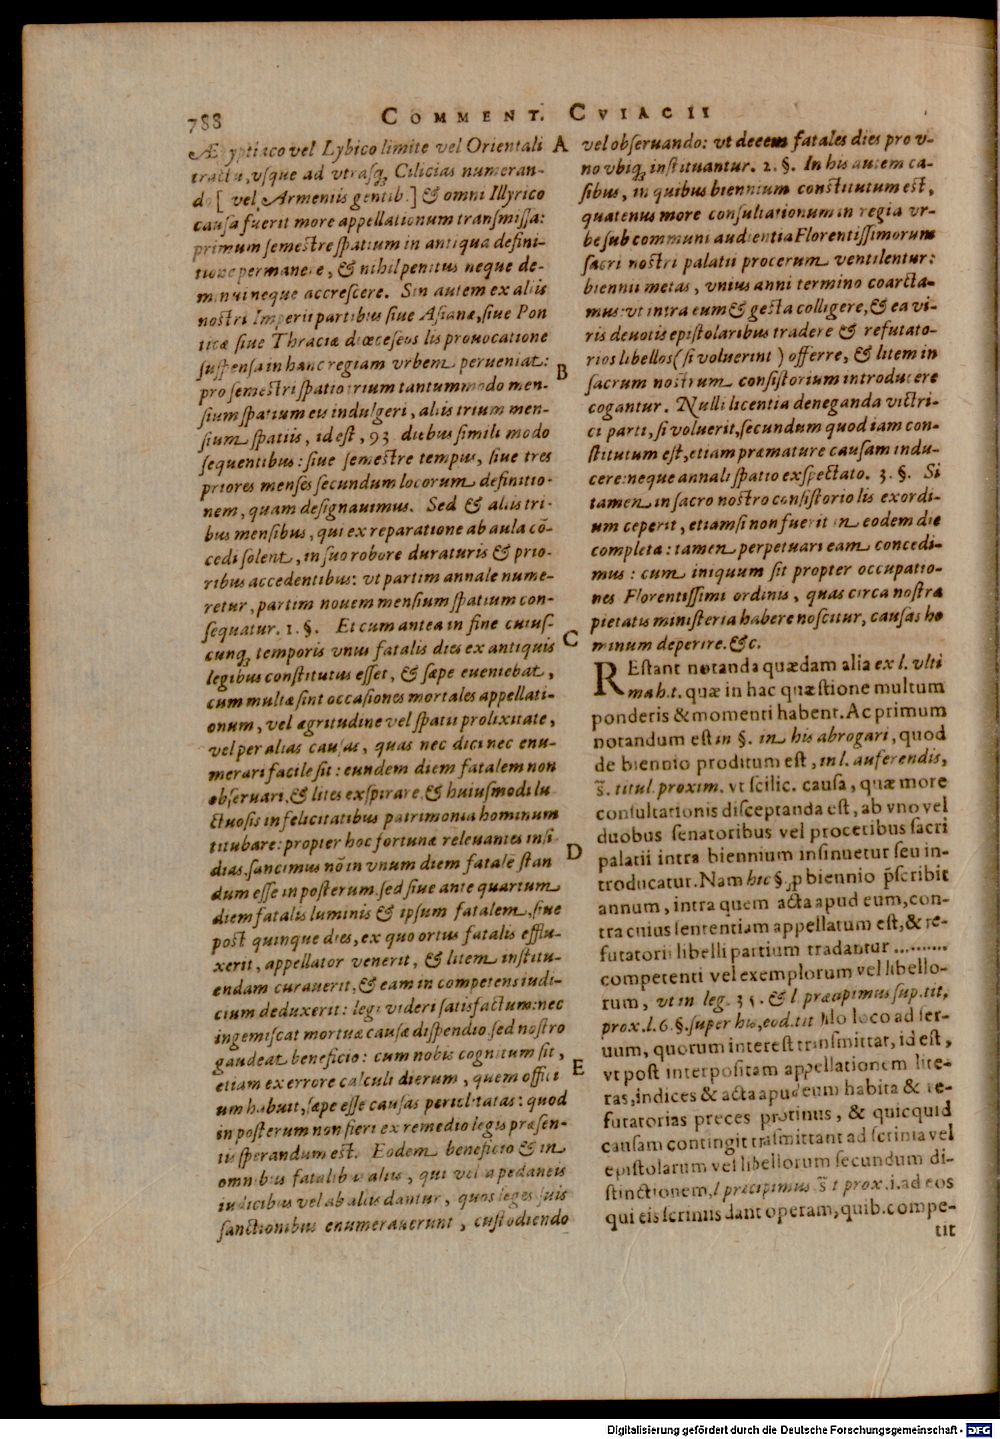 788
COMMENT. CVIACII
Ægyptiaco vel Lybico limite vel Orientali
tractu, vsque ad vtrasq; Cilicias numeran-
do [ vel Armeniis gentib.] & omni Illyrico
causa fuerit more appellationum transmissa:
primum semestre spatium in antiqua defini-
tione permanere, & nihil penitus neque de-
minui neque accrescere. Sin autem ex aliis
nostri Imperii partibus siue Asianæ, siue Pon
ticæ siue Thraciæ diœceseos lis prouocatione
suspensa in hanc regiam vrbem perueniat:
pro semestri spatio trium tantummodo men-
sium spatium eis indulgeri, aliis trium men-
sium spatiis, id est, 93 diebus simili modo
sequentibus: siue semestre tempus, siue tres
priores menses secundum locorum definitio-
nem, quam designauimus. Sed & aliis tri-
bus mensibus, qui ex reparatione ab aula cõ-
cedi solent, in suo robore duraturis & prio-
ribus accedentibus: vt partim annale nume-
retur, partim nouem mensium spatium con-
sequatur. 1. §. Et cum antea in fine cuius-
cunq; temporis vnus fatalis dies ex antiquis
legibus constitutus esset, & sæpe eueniebat,
cum multæ sint occasiones mortales appellati-
onum, vel ægritudine vel spatii prolixitate,
vel per alias causas, quas nec dici nec enu-
merari facile sit: eundem diem fatalem non
obseruari, & lites exspirare & huiusmodi lu
ctuosis infelicitatibus patrimonia hominum
titubare: propter hoc fortunæ releuantes insi
dias, sancimus nõ in vnum diem fatalẽ stan
dum esse in posterum, sed siue ante quartum
diem fatalis luminis & ipsum fatalem, siue
post quinque dies, ex quo ortus fatalis efflu-
xerit, appellator venerit, & litem institu-
endam curauerit, & eam in competens iudi-
cium deduxerit: legi videri satisfactum: nec
ingemiscat mortuæ causæ dispendio, sed nostro
gaudeat beneficio: cum nobis cognitum sit,
etiam ex errore calculi dierum, quem offici
um habuit, sæpe esse causas periclitatas: quod
in posterum non fieri ex remedio legis præsen-
tis sperandum est. Eodem beneficio & in
omnibus fatalibus aliis, qui vel a pedaneis
iudicibus vel ab aliis dantur, quos leges suis
sanctionibus enumerauerunt, custodiendo
A
B
C
D
E
vel obseruando: vt decem fatales dies pro v-
no vbiq; instituantur. 2. §. In his autem ca-
sibus, in quibus biennium constitutum est,
quatenus more consultationum in regia vr-
be sub communi audientia Florentissimorum
sacri nostri palatii procerum ventilentur:
biennii metas, vnius anni termino coarcta-
mus: vt intra eum & gesta colligere, & ea vi-
ris deuotis epistolaribus tradere & refutato-
rios libellos (si voluerint) offerre, & litem in
sacrum nostrum consistorium introducere
cogantur. Nulli licentia deneganda victri-
ci parti, si voluerit, secundum quod iam con-
stitutum est, etiam præmature causam indu-
cere: neque annali spatio exspectato. 3. §. Si
tamen in sacro nostro consistorio lis exordi-
um ceperit, etiamsi non fuerit in eodem die
completa: tamen perpetuari eam concedi-
mus: cum iniquum sit propter occupatio-
nes Florentissimi ordinis, quas circa nostra
pietatis ministeria habere noscitur, causas ho
minum deperire. &c.
REstant notanda quædam alia ex l. vlti
ma h.t. quæ in hac quæstione multum
ponderis & momenti habent. Ac primum
notandum est in §. in his abrogari, quod
de biennio proditum est, in l. auferendis,
s̃. titul. proxim. vt scilic. causa, quæ more
consultationis disceptanda est, ab vno vel
duobus senatoribus vel proceribus sacri
palatii intra biennium insinuetur seu in-
troducatur. Nam hic §. ꝓ biennio p̃scribit
annum, intra quem acta apud eum, con-
tra cuius sententiam appellatum est, & re-
futatorii libelli partium tradantur .........
competenti vel exemplorum vel libello-
rum, vt in leg. 35. & l præcipimus sup. tit,
prox. l. 6. §. super his, eod. tit Illo loco ad ser-
uum, quorum interest transmittat, id est,
vt post interpositam appellationem lite-
ras, indices & acta apud eum habita & re-
futatorias preces protinus, & quicquid
causam contingit trãsmittant ad scrinia vel
epistolarum vel libellorum secundum di-
stinctionem, l præcipimus s̃ t prox. i. ad eos
qui eis scrinijs dant operam, quib. compe-
tit
Digitalisierung gefördert durch die Deutsche Forschungsgemeinschaft - DFG